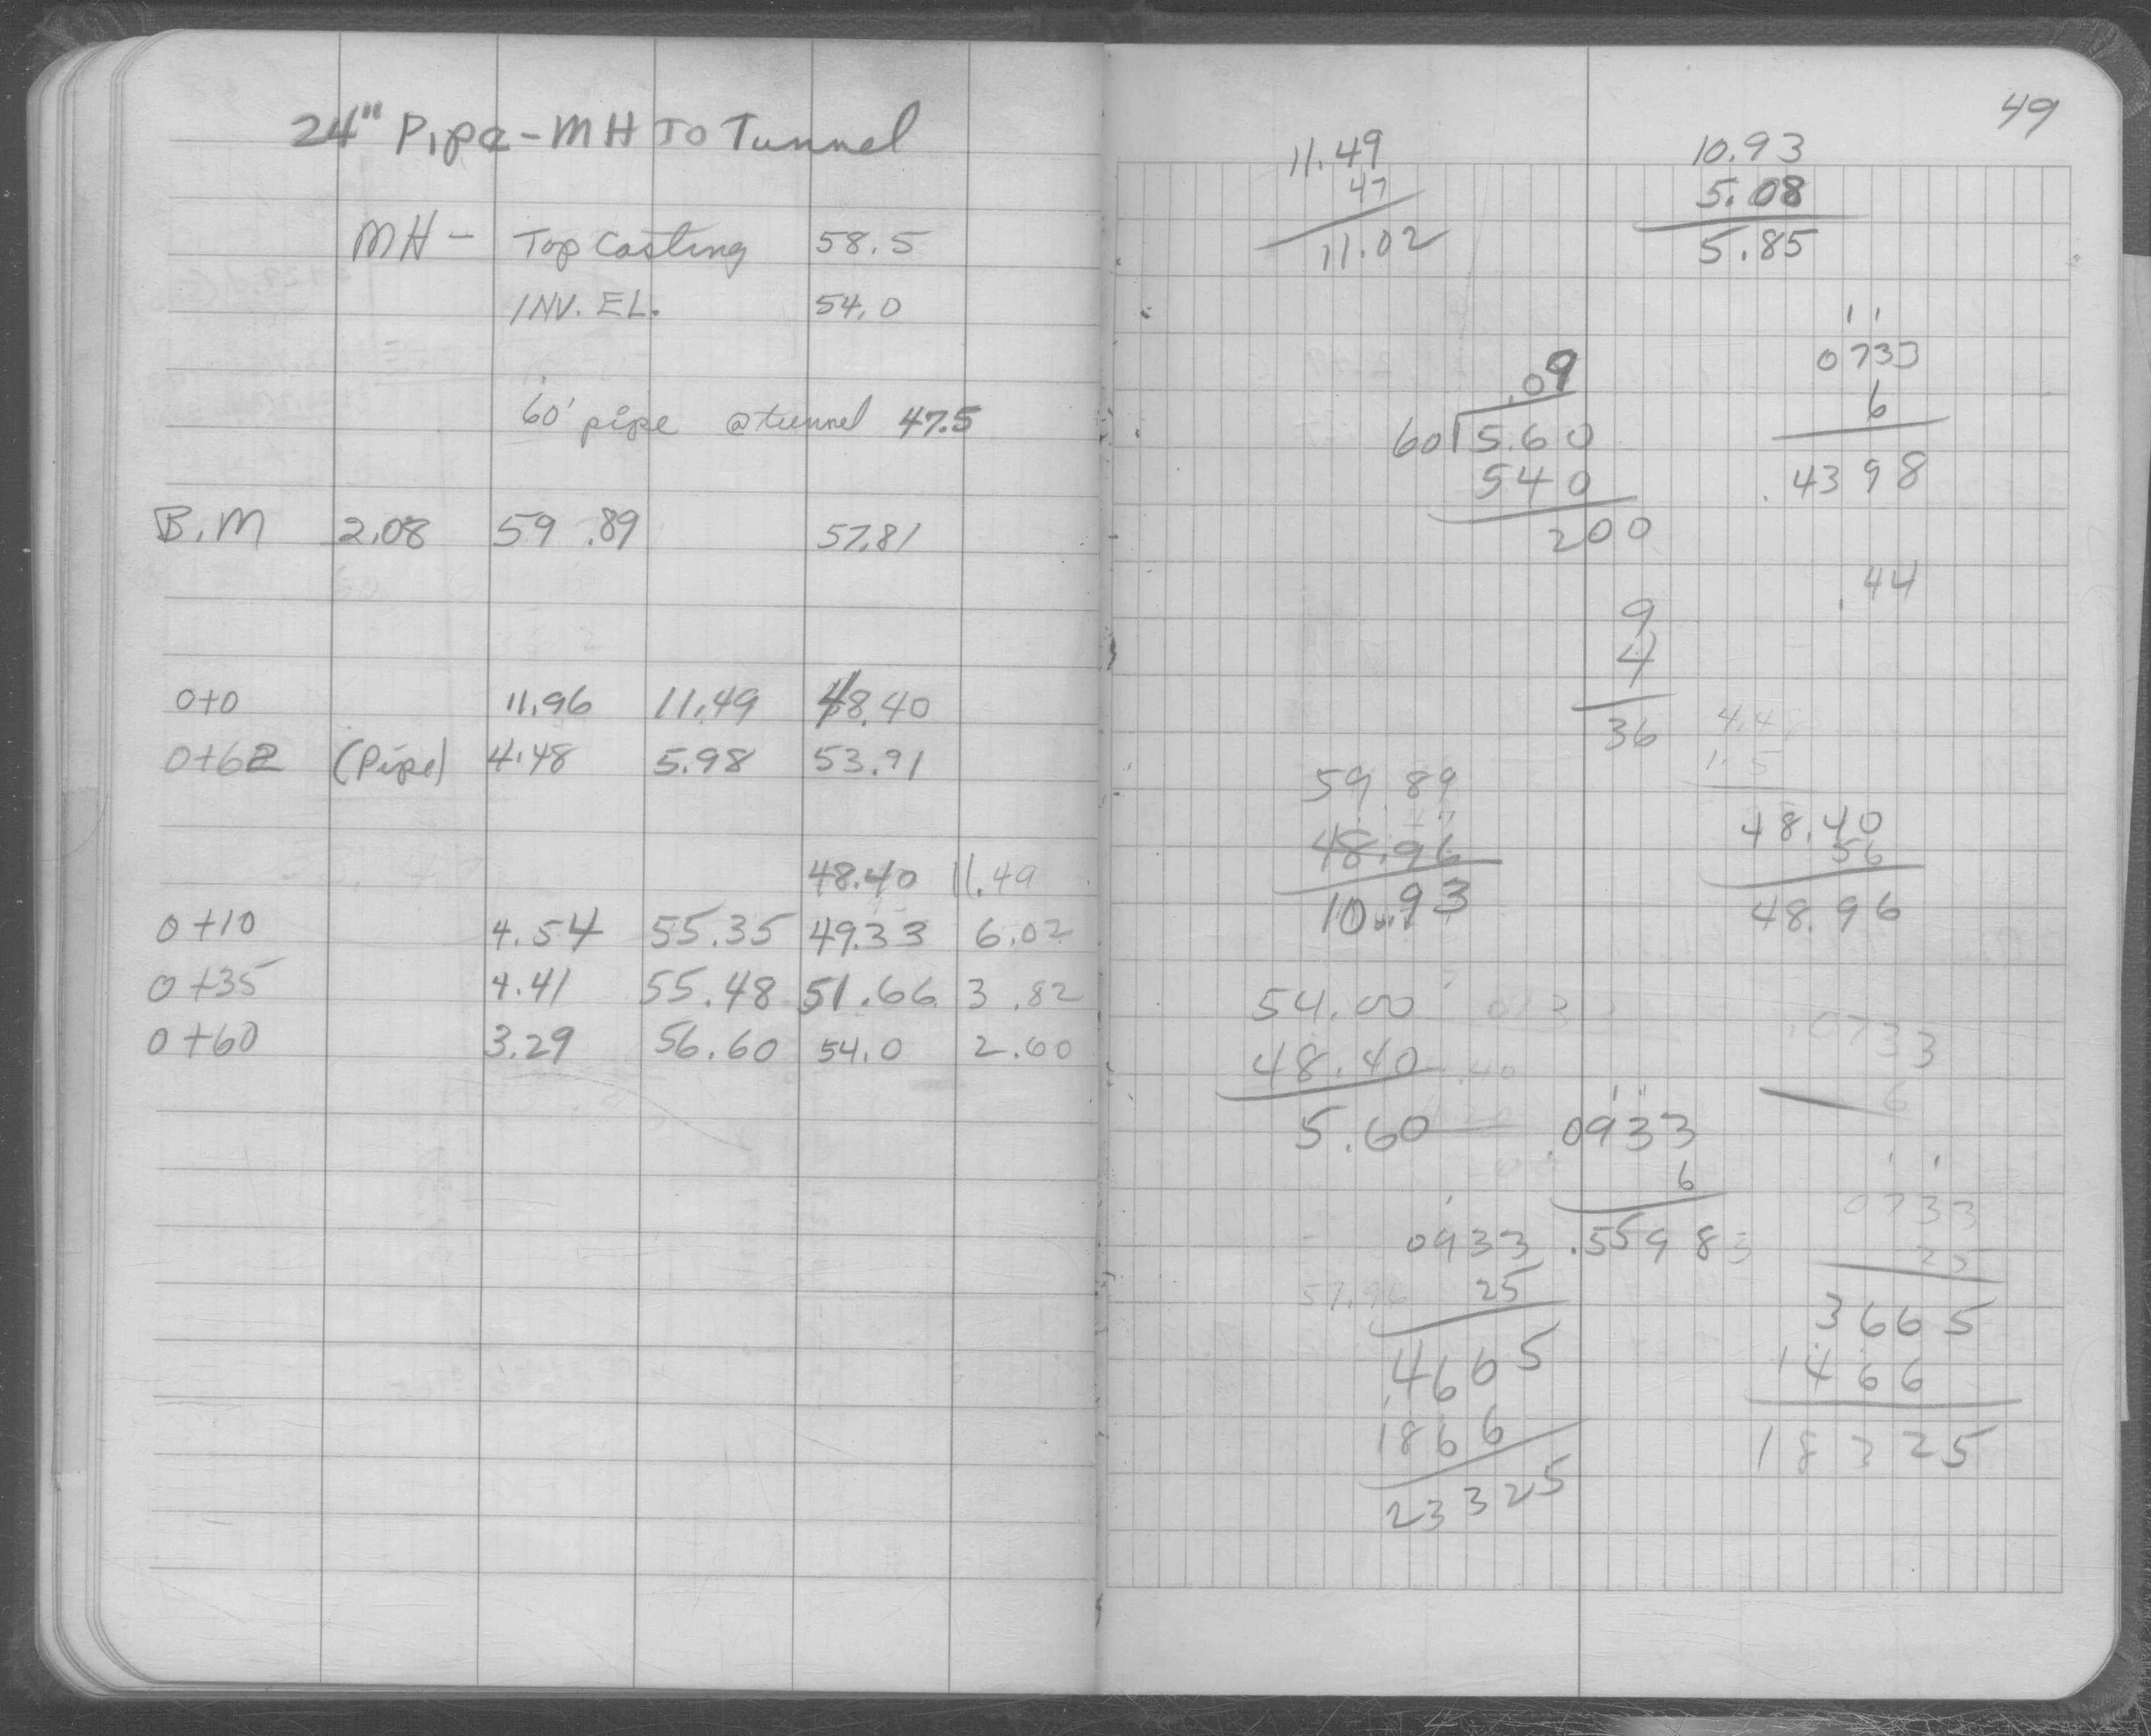 24" Pipe - MH TO Tunnel
MH - Top Casting 58.5
INV. EL. 54.0
60' pipe @ tunnel 47.5
B.M 2.08 59.89 57.81
0+0 11.96 11.49 48.40
0+62 (Pipe) 4.48 5.98 53.91
48.40 11.49
0+10 4.54 55.35 49.33 6.02
0+35 4.41 55.48 51.66 3.82
0+60 3.29 56.60 54.0 2.60
49
11.49
47
11.02
10.93
5.08
5.85
.09
60 5.60
540
200
1 1
0733
6
.4398
.44
9
4
36
59.89
48.96
10.93
48.40
56
48.96
54.00
48.40
5.60
.0733
6
0933
6
.5598
0933
25
4665
1866
23325
0733
25
3665
1466
18325